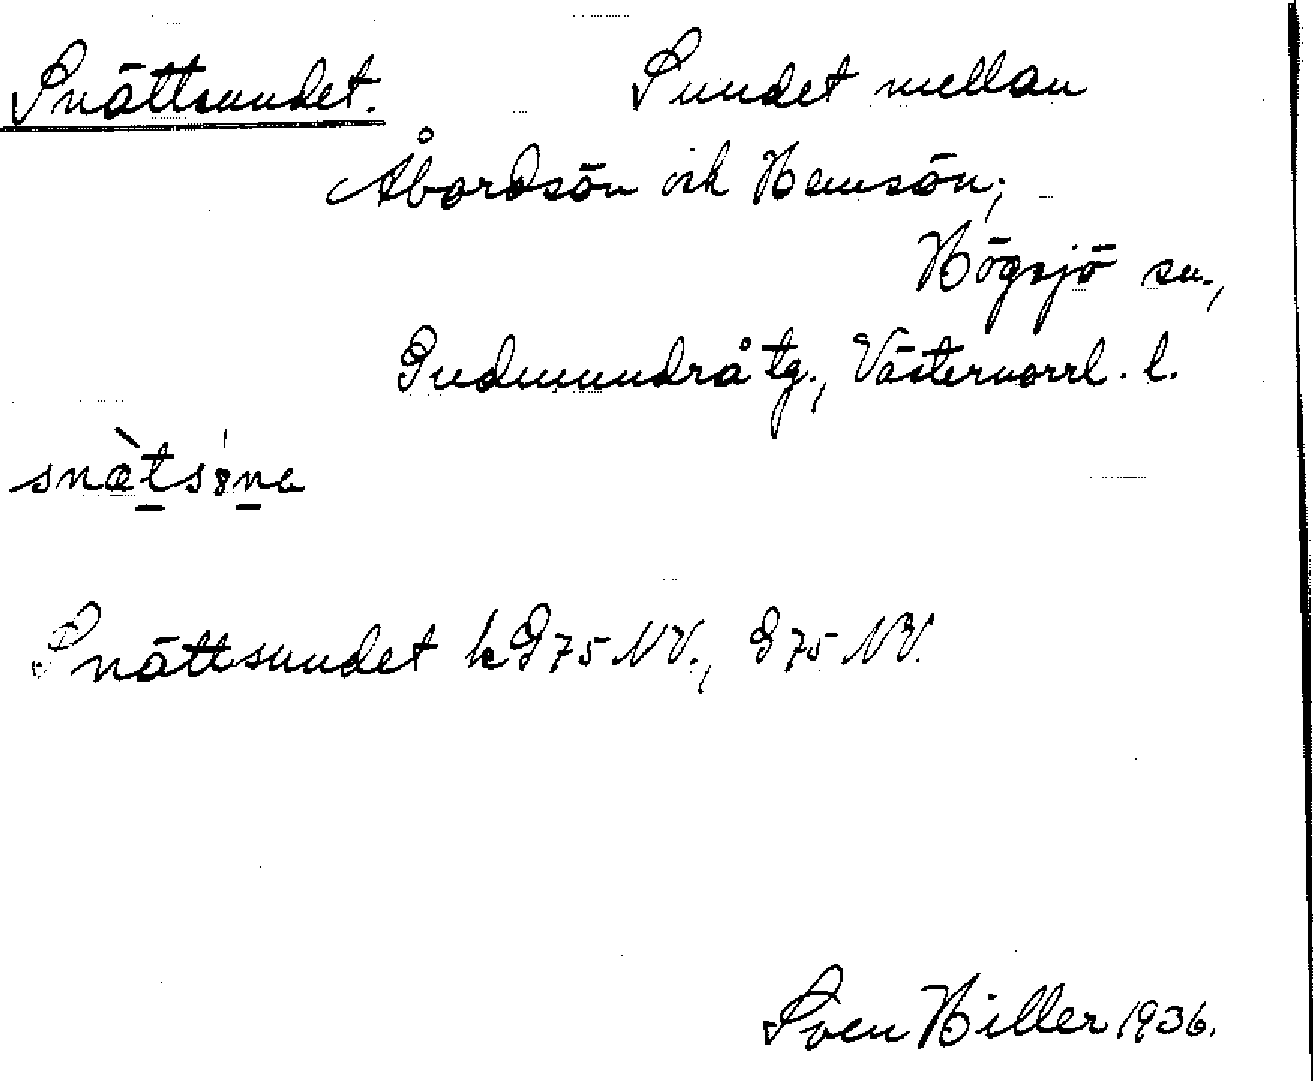 Snättsundet. Sundet mellan
Åbordsön och Hemsön;
Högsjö sn.,
Gudmundrå tg., Västernorrl. l.
snætsɵna
Snättsundet k G75 NV., G75 NV.
Sven Hiller 1936.